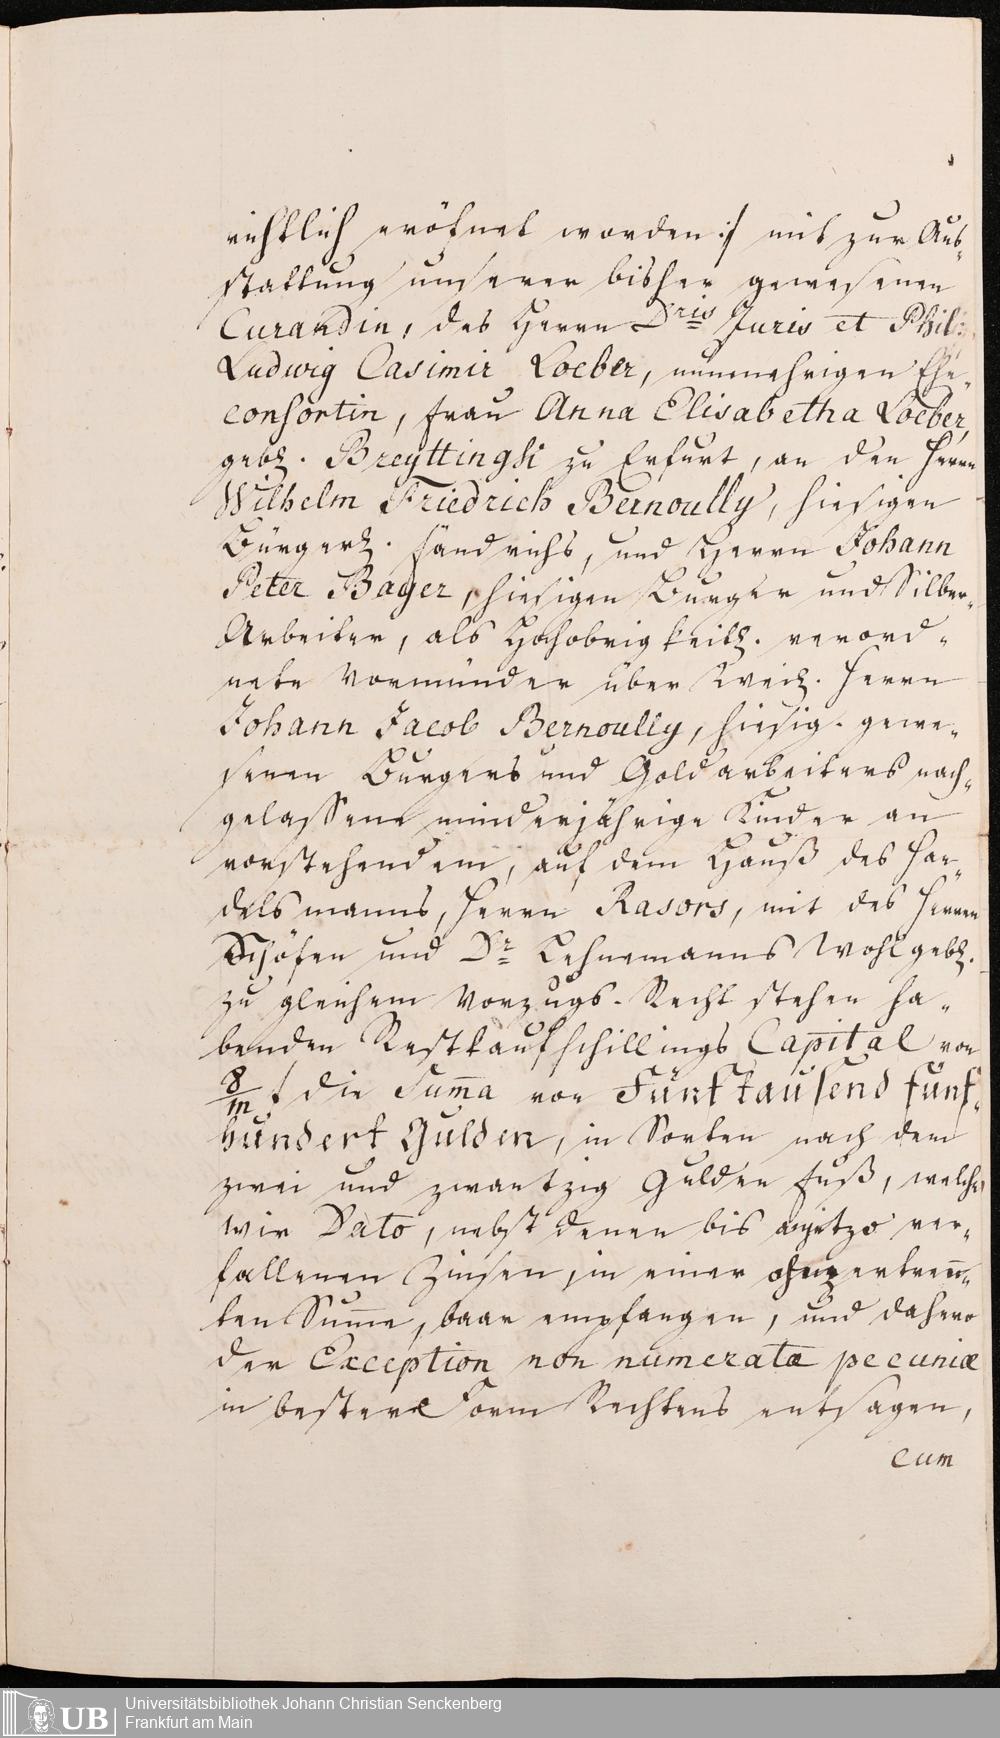 richtlich eröfnet worden :/ mit zur Aus-
stattung unserer bisher gewesenen
Curandin, des Herrn Dris Juris et Phil:
Ludwig Casimir Loeber, nunmehrigen Ehe-
consortin, Frau Anna Elisabetha Loeber,
gebl. Breyttingh zu Erfurt, an den Herrn
Wilhelm Friedrich Bernoully, hiesigen
Bürgerl. Fändrichs, und Herrn Johann
Peter Bager, hiesigen Burger und Silber-
Arbeiter, als Hochobrigkeitl. verord-
nete Vormünder über Weil. Herrn
Johann Jacob Bernoully, hiesig. gewe-
senen Burgers und Goldarbeiters nach-
gelassene minderjährige Kinder an
vorstehendem, auf dem Hauß des Han-
delsmanns, Herrn Rasors, mit des Herren
Schöfen und Dr. Lehnemanns Wohlgebl.
zu gleichem Vorzugs-Recht stehen ha-
benden Restkaufschillings Capital von
8/m f die Sum̄a von Fünftausend fünf-
hundert Gulden, in Sorten nach dem
zwei und zwantzig Gulden Fuß, welche
wir Dato, nebst denen bis anjetzo ver-
fallenen Zinsen, in einer ohnzertren̄-
ten Sum̄e, baar empfangen, und dahero
der Exception non numeratæ pecuniæ
in bestere Form Rechtens entsagen,
cum
Universitätsbibliothek Johann Christian Senckenberg
Frankfurt am Main
UB